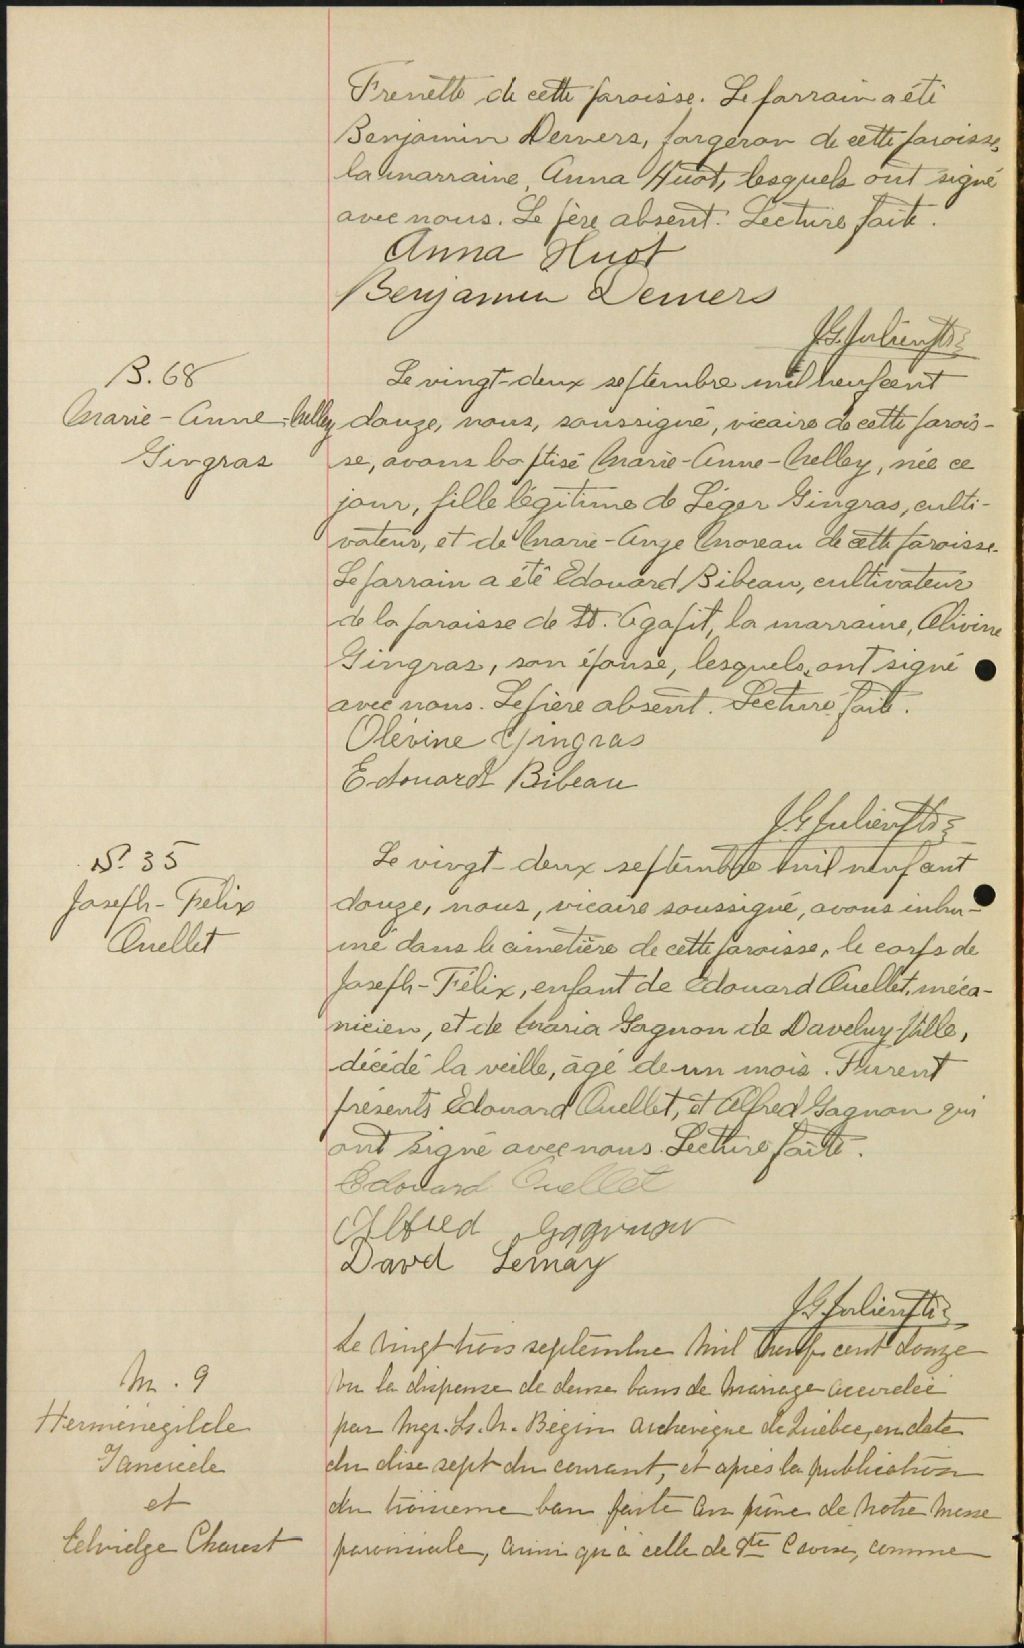 Frenette de cette paroisse. Le parrain a été
Benjamin Demers, forgeron de cette paroisse,
la marraine, Anna Huot, lesquels ont signé
avec nous. Le père absent. Lecture faite.
Anna Huot
Benjamin Demers
J.G. Julien Ptr
B. 68
Marie-Anne-Nelley
Gingras
Le vingt-deux septembre mil neuf cent
douze, nous, soussigné, vicaire de cette parois-
se, avons baptisé Marie-Anne-Nelley, née ce
jour, fille légitime de Léger Gingras, culti-
vateur, et de Marie-Ange Moreau de cette paroisse.
Le parrain a été Edouard Bibeau, cultivateur
de la paroisse de St. Agapit, la marraine, Olivine
Gingras, son épouse, lesquels ont signé
avec nous. Le père absent. Lecture faite.
Olévine Gingras
Edouard Bibeau
J.G. Julien Ptr
S. 35
Joseph-Félix
Ouellet
Le vingt-deux septembre mil neuf cent
douze, nous, vicaire soussigné, avons inhu-
mé dans le cimetière de cette paroisse, le corps de
Joseph-Félix, enfant de Edouard Ouellet, méca-
nicien, et de Maria Gagnon de Daveluy-ville,
décédé la veille, âgé de un mois. Furent
présents Edouard Ouellet, et Alfred Gagnon qui
ont signé avec nous. Lecture faite.
Edouard Ouellet
Alfred Gagnon
David Lemay
J.G. Julien Ptr
M. 9
Herménégilde
et
Edvidge Charest
Le vingt trois septembre mil neuf cent douze
vu la dispense de deux bans de mariage accordée
par Mgr. Ls. N. Bégin archevêque de Québec, en date
du dix sept du courant, et après la publication
du troisième ban faite au prône de notre messe
paroissiale, ainsi qu'à celle de Ste Croix, comme